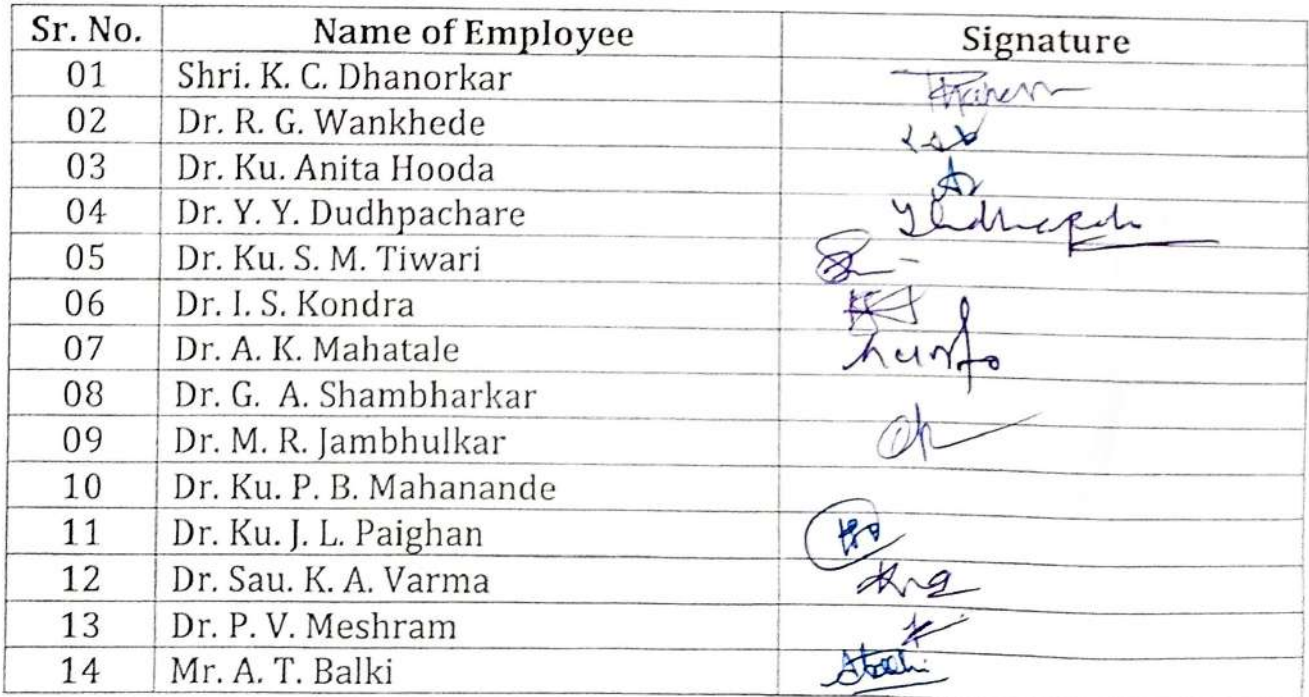 Sr. No. Name of Employee Signature
01 Shri. K. C. Dhanorkar
02 Dr. R. G. Wankhede
03 Dr. Ku. Anita Hooda
04 Dr. Y. Y. Dudhpachare
05 Dr. Ku. S. M. Tiwari
06 Dr. I. S. Kondra
07 Dr. A. K. Mahatale
08 Dr. G. A. Shambharkar
09 Dr. M. R. Jambhulkar
10 Dr. Ku. P. B. Mahanande
11 Dr. Ku. J. L. Paighan
12 Dr. Sau. K. A. Varma
13 Dr. P. V. Meshram
14 Mr. A. T. Balki